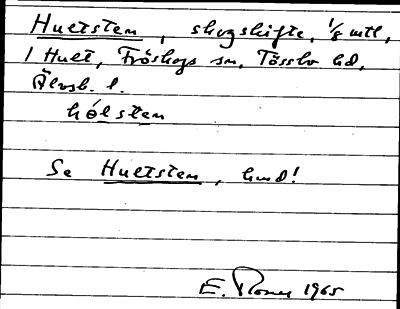 Huetsten, skogskifte, 1/8 mtl,
1 Huet, Fröskogs sn, Tössbo hd,
Älvsb. l.
hóelsten
Se Huetsten, hmd!
E. 1965